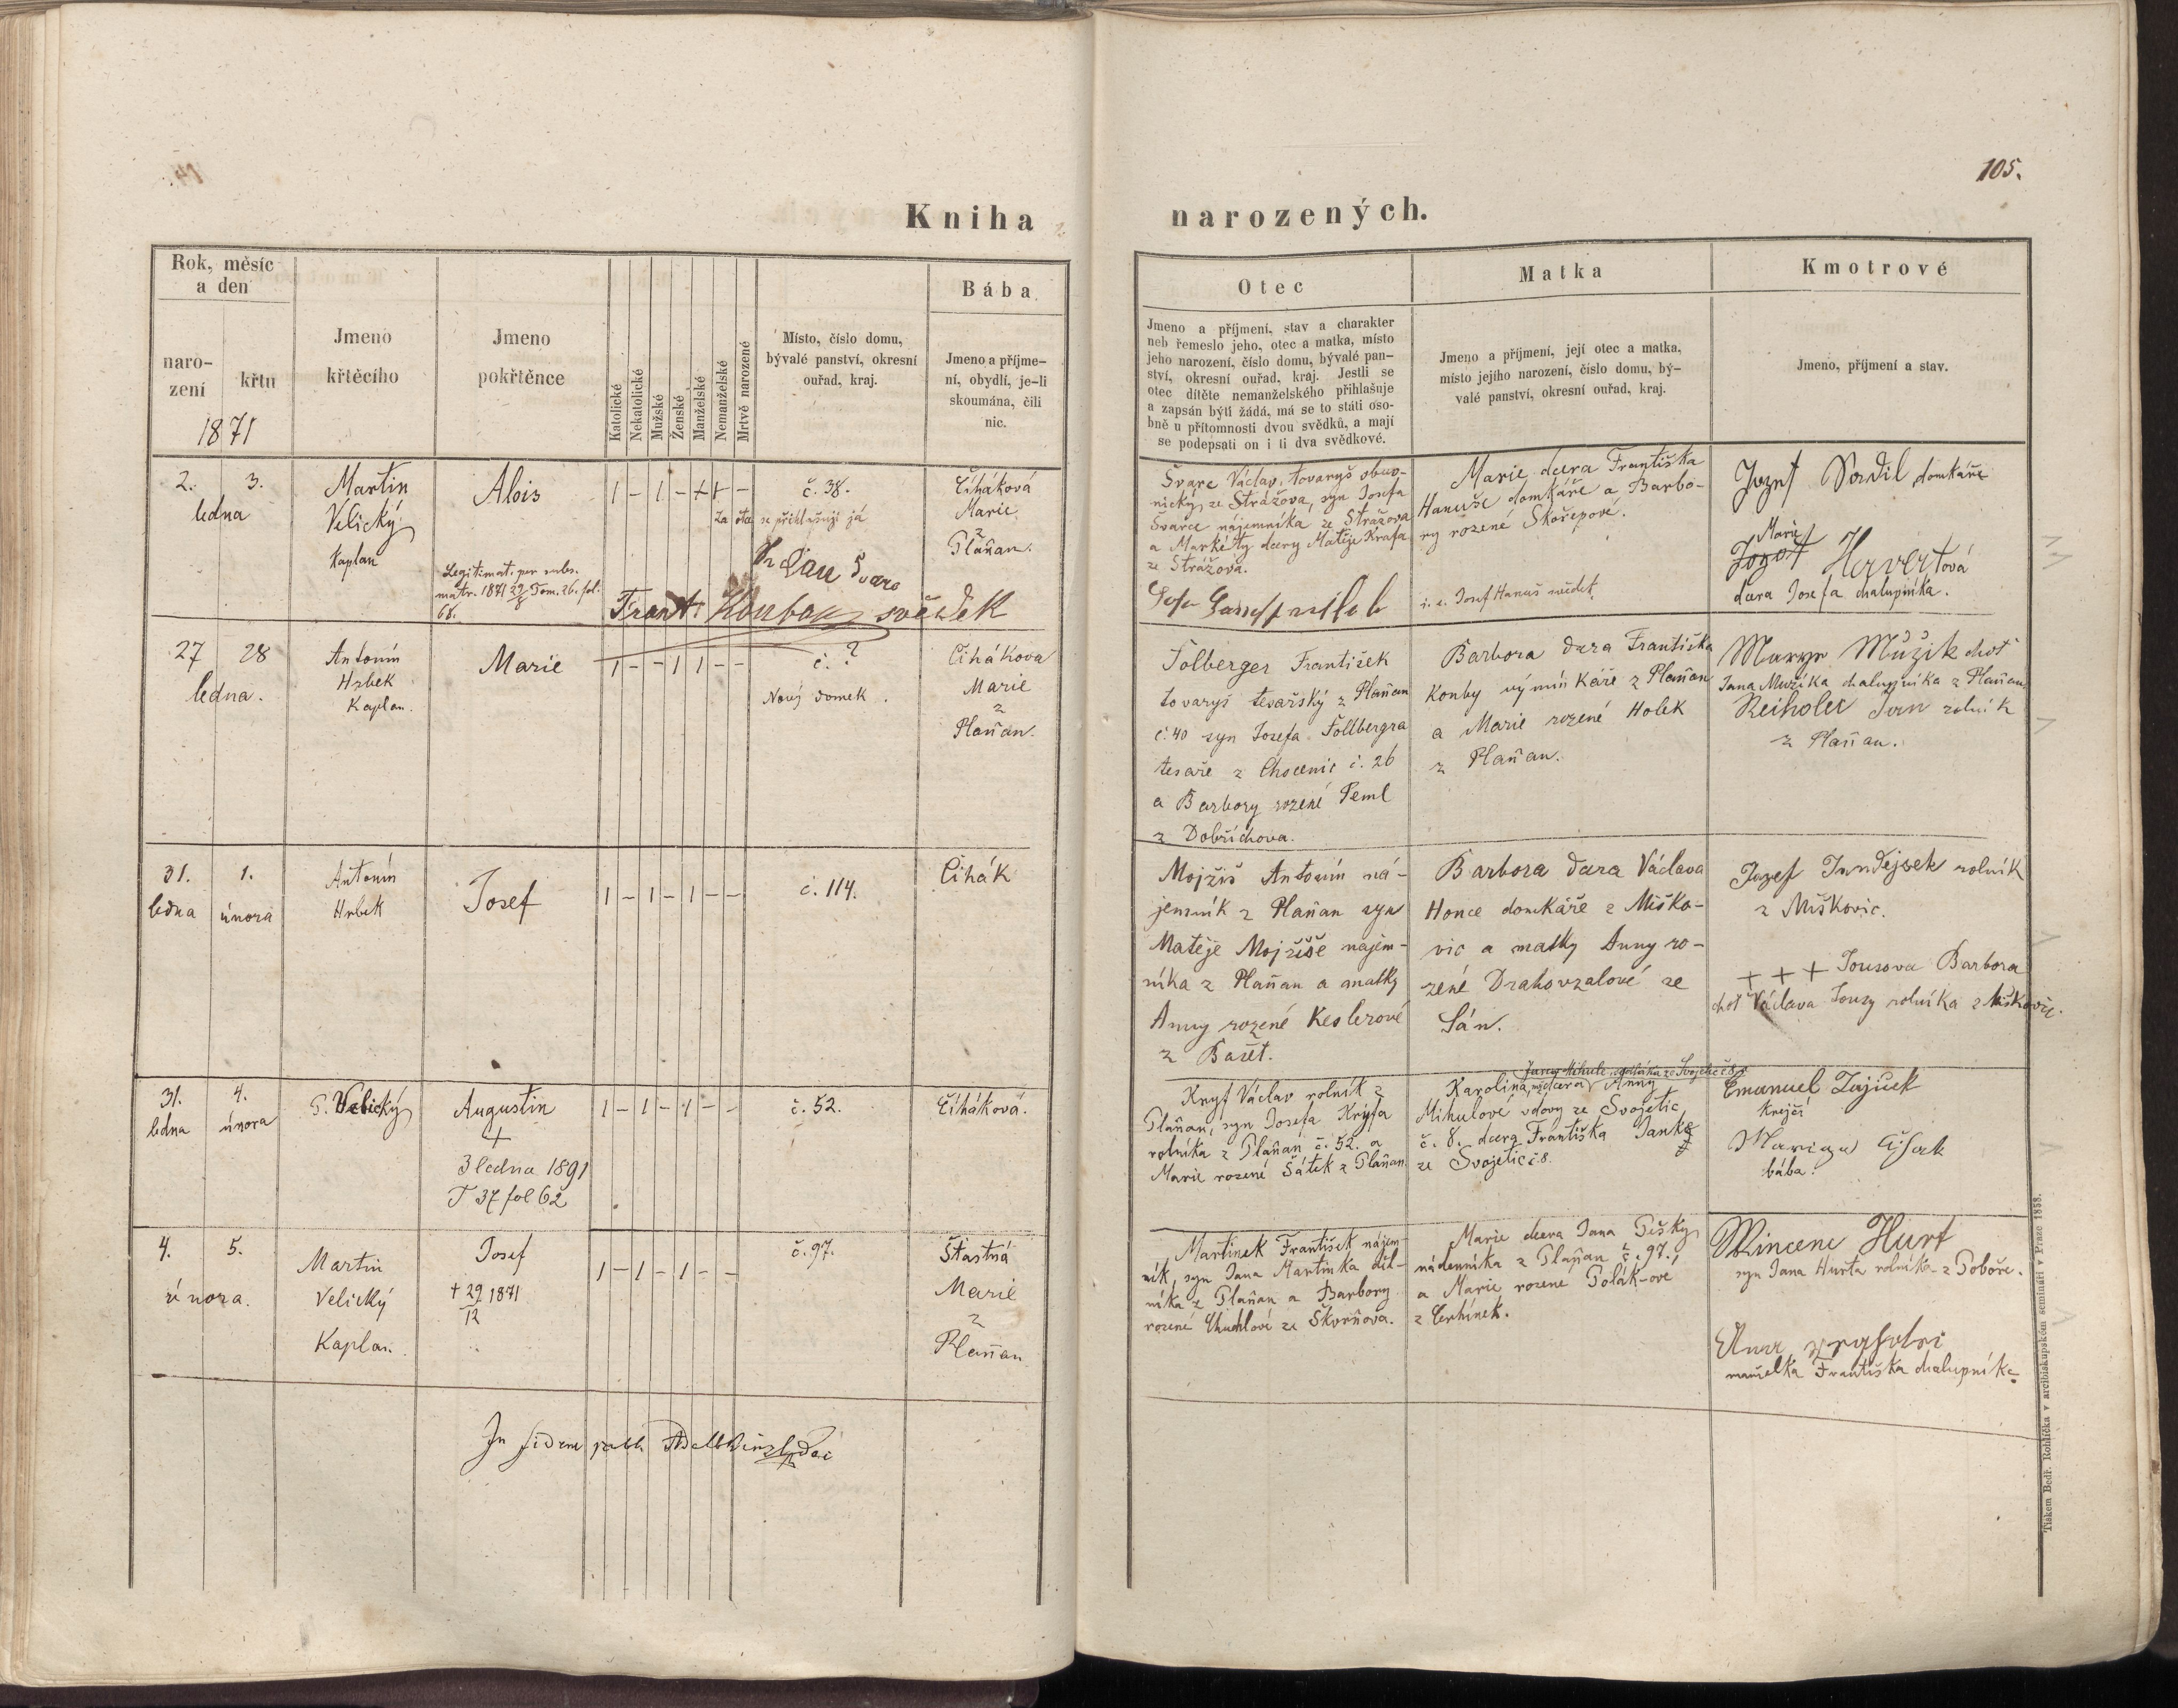 105.
Kniha narozených.
Rok, měsíc a den
naro-
zení
křtu
1871
Jmeno
křtěcího
Jmeno
pokřtěnce
Katolické
Nekatolické
Mužské
Ženské
Manželské
Nemanželské
Mrtvě narozené
Místo, číslo domu,
bývalé panství, okresní
ouřad, kraj.
Bába
Jmeno a příjme-
ní, obydlí, je-li
skoumána, čili
nic.
Otec
Jmeno a příjmení, stav a charakter
neb řemeslo jeho, otec a matka, místo
jeho narození, číslo domu, bývalé pan-
ství, okresní ouřad, kraj. Jestli se
otec dítěte nemanželského přihlašuje
a zapsán býti žádá, má se to státi oso-
bně u přítomnosti dvou svědků, a mají
se podepsati on i ti dva svědkové.
Matka
Jmeno a příjmení, její otec a matka,
místo jejího narození, číslo domu, bý-
valé panství, okresní ouřad, kraj.
Kmotrové
Jmeno, příjmení a stav.
2. 3.
ledna
Martin
Velický
Kaplan
Alois
Legitimat. per subs.
matr. 1871 29/8 Tom. 26. fol.
68.
1 – 1 – + 1 –
č. 38.
za otce se přiklušuji já
Švarc
Frant. Koubek svědek
Čiháková
Marie
z
Plaňan.
Švarc Václav, tovaryš obuv-
nický, ze Strážova, syn Josefa
Švarce nájemníka ze Strážova
a Markéty dcery Matěje Krafa
ze Strážova.
Marie dcera Františka
Hanuše domkáře a Barbo-
ry rozené Skořepové.
i. e. Josef Hanuš svědek
Jozef Vodil domkáře
Marie
Jozef Hervertová
dcera Josefa chalupníka.
27 28
ledna.
Antonín
Hrbek
Kaplan.
Marie
1 – – 1 1 – –
č. ?
Nový domek.
Čihákova
Marie
z
Plaňan.
Folberger František
tovaryš tesařský z Plaňan
č. 40 syn Josefa Follbergra
tesaře z Chocenic č. 26
a Barbory rozené Peml
z Dobřichova.
Barbora dcera Františka
Konby výminkáře z Plaňan
a Marie rozené Holek
z Plaňan.
Marye Mužik choť
Jana Mužíka chalupníka z Plaňan.
Reiholec Jan rolník
z Plaňan.
31. 1.
ledna února
Antonín
Hrbek
Josef
1 – 1 – 1 – –
č. 114.
Čihák
Mojžiš Antonín ná-
jemník z Plaňan syn
Matěje Mojžíše nájem-
níka z Plaňan a matky
Anny rozené Keslerové
z Bařet.
Barbora dcera Václava
Honce domkáře z Miško-
vic a matky Anny ro-
zené Drahovzalové ze
Sán.
Jozef Jandejsek rolník
z Miškovic.
+ + + Tousova Barbora
choť Václava Tousy rolníka z Miškovic.
31. 4.
ledna února
P. Velický
Augustin
+
3 ledna 1891
T 37 fol 62
1 – 1 – 1 – –
č. 52.
Čiháková.
Kryf Václav rolník z
Plaňan, syn Josefa Kryfa
rolníka z Plaňan č. 52. a
Marie rozené Šátek z Plaňan.
Jana Mihule sedláka ze Svojetic č 8.
Karolina, dcera Anny
Mihulové vdovy ze Svojetic
č. 8. dcera Františka Janka
ze Svojetic č 8.
Emanuel Zajíček
Krejčí
Mariya Čihak
bába.
4. 5.
února.
Martin
Velický
Kaplan.
Josef
+ 29/12 1871
1 – 1 – 1 – –
č. 97.
Šťastná
Marie
z
Plaňan
Martinek František nájem-
ník, syn Jana Martinka děl-
níka z Plaňan a Barbory
rozené Chuchlové ze Škvrňova.
Marie dcera Jana Pišky
nádenníka z Plaňan č. 97.,
a Marie rozené Polák-ové
z Cerhínek.
Wincenc Hurt
syn Jana Hurta rolníka z Poboře.
Anna
manželka Františka chalupníka
In fidem
Tiskem Bedř. Rohlíčka v arcibiskupském semináři v Praze 1858.